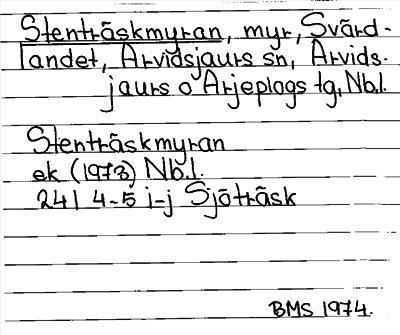 Stenträskmyran, myr, Svärd-
landet, Arvidsjaurs sn, Arvids-
jaurs o Arjeplogs tg, Nb.l.
Stenträskmyran
ek (1973) Nb.l.
24I 4-5 i-j Sjöträsk
BMS 1974.